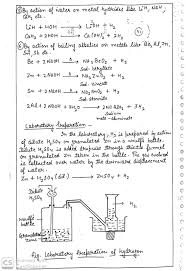 By action of water on metal hydrides like LiH, NaH,
CaH₂ etc.
LiH + HOH → LiOH + H₂
CaH₂ + 2HOH → Ca(OH)₂ + 2H₂
By action of boiling alkalies on metals like Be, Al, Zn,
Sn, Sb etc.
Be + 2NaOH → Na₂BeO₂ + H₂
Sod. beryllate
Zn + 2NaOH → Na₂ZnO₂ + H₂
Sod. zincate
+ 2NaOH → + H₂
Sod. stannate
2Al + 2NaOH + 2H₂O → 2NaAlO₂ + 3H₂
Sodium
meta-aluminate
Laboratory Preparation :-
In the laboratory, H₂ is prepared by action
of dilute H₂SO₄ on granulated Zn in a woulfe bottle.
Dilute H₂SO₄ is added through thistle funnel
on granulated Zn taken in the bottle. The gas evolved
is collected over water by the downward displacement
of water.
Zn + H₂SO₄ (dil) → ZnSO₄ + H₂
Dilute
H₂SO₄
Woulfe's
bottle
Granulated
zinc
H₂
Fig: Laboratory Preparation of hydrogen.
CS